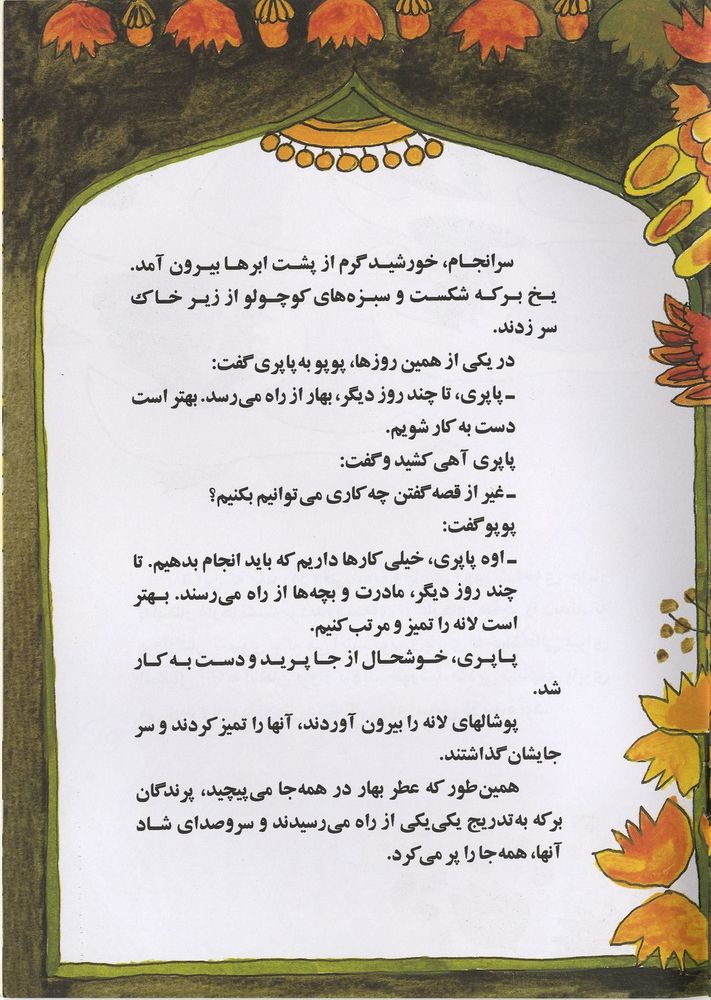 سرانجام، خورشید گرم از پشت ابرها بیرون آمد.
یخ برکه شکست و سبزه‌های کوچولو از زیر خاک
سر زدند.
در یکی از همین روزها، پوپو به پاپری گفت:
ـ پاپری، تا چند روز دیگر، بهار از راه می‌رسد. بهتر است
دست به کار شویم.
پاپری آهی کشید و گفت:
ـ غیر از قصه گفتن چه کاری می‌توانیم بکنیم؟
پوپو گفت:
ـ اوه پاپری، خیلی کارها داریم که باید انجام بدهیم. تا
چند روز دیگر، مادرت و بچه‌ها از راه می‌رسند. بهتر
است لانه را تمیز و مرتب کنیم.
پاپری، خوشحال از جا پرید و دست به کار
شد.
پوشالهای لانه را بیرون آوردند، آنها را تمیز کردند و سر
جایشان گذاشتند.
همین‌طور که عطر بهار در همه‌جا می‌پیچید، پرندگان
برکه به‌تدریج یکی‌یکی از راه می‌رسیدند و سروصدای شاد
آنها، همه‌جا را پر می‌کرد.